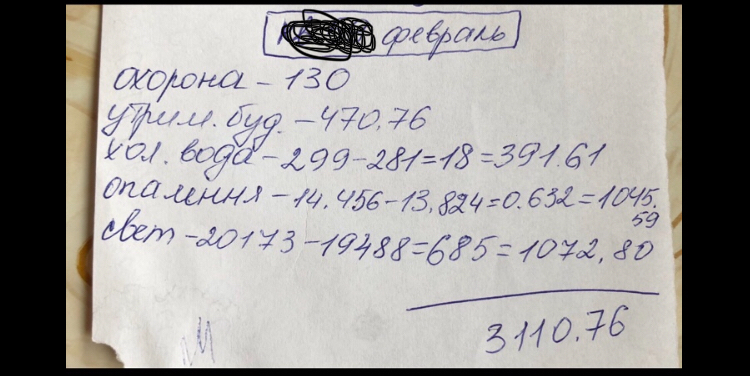 февраль
охорона - 130
утрим. буд. - 470.76
хол. вода - 299 - 281 = 18 = 391.61
опалення - 14.456 - 13.824 = 0.632 = 1045.
59
свет - 20173 - 19488 = 685 = 1072,80
3110.76